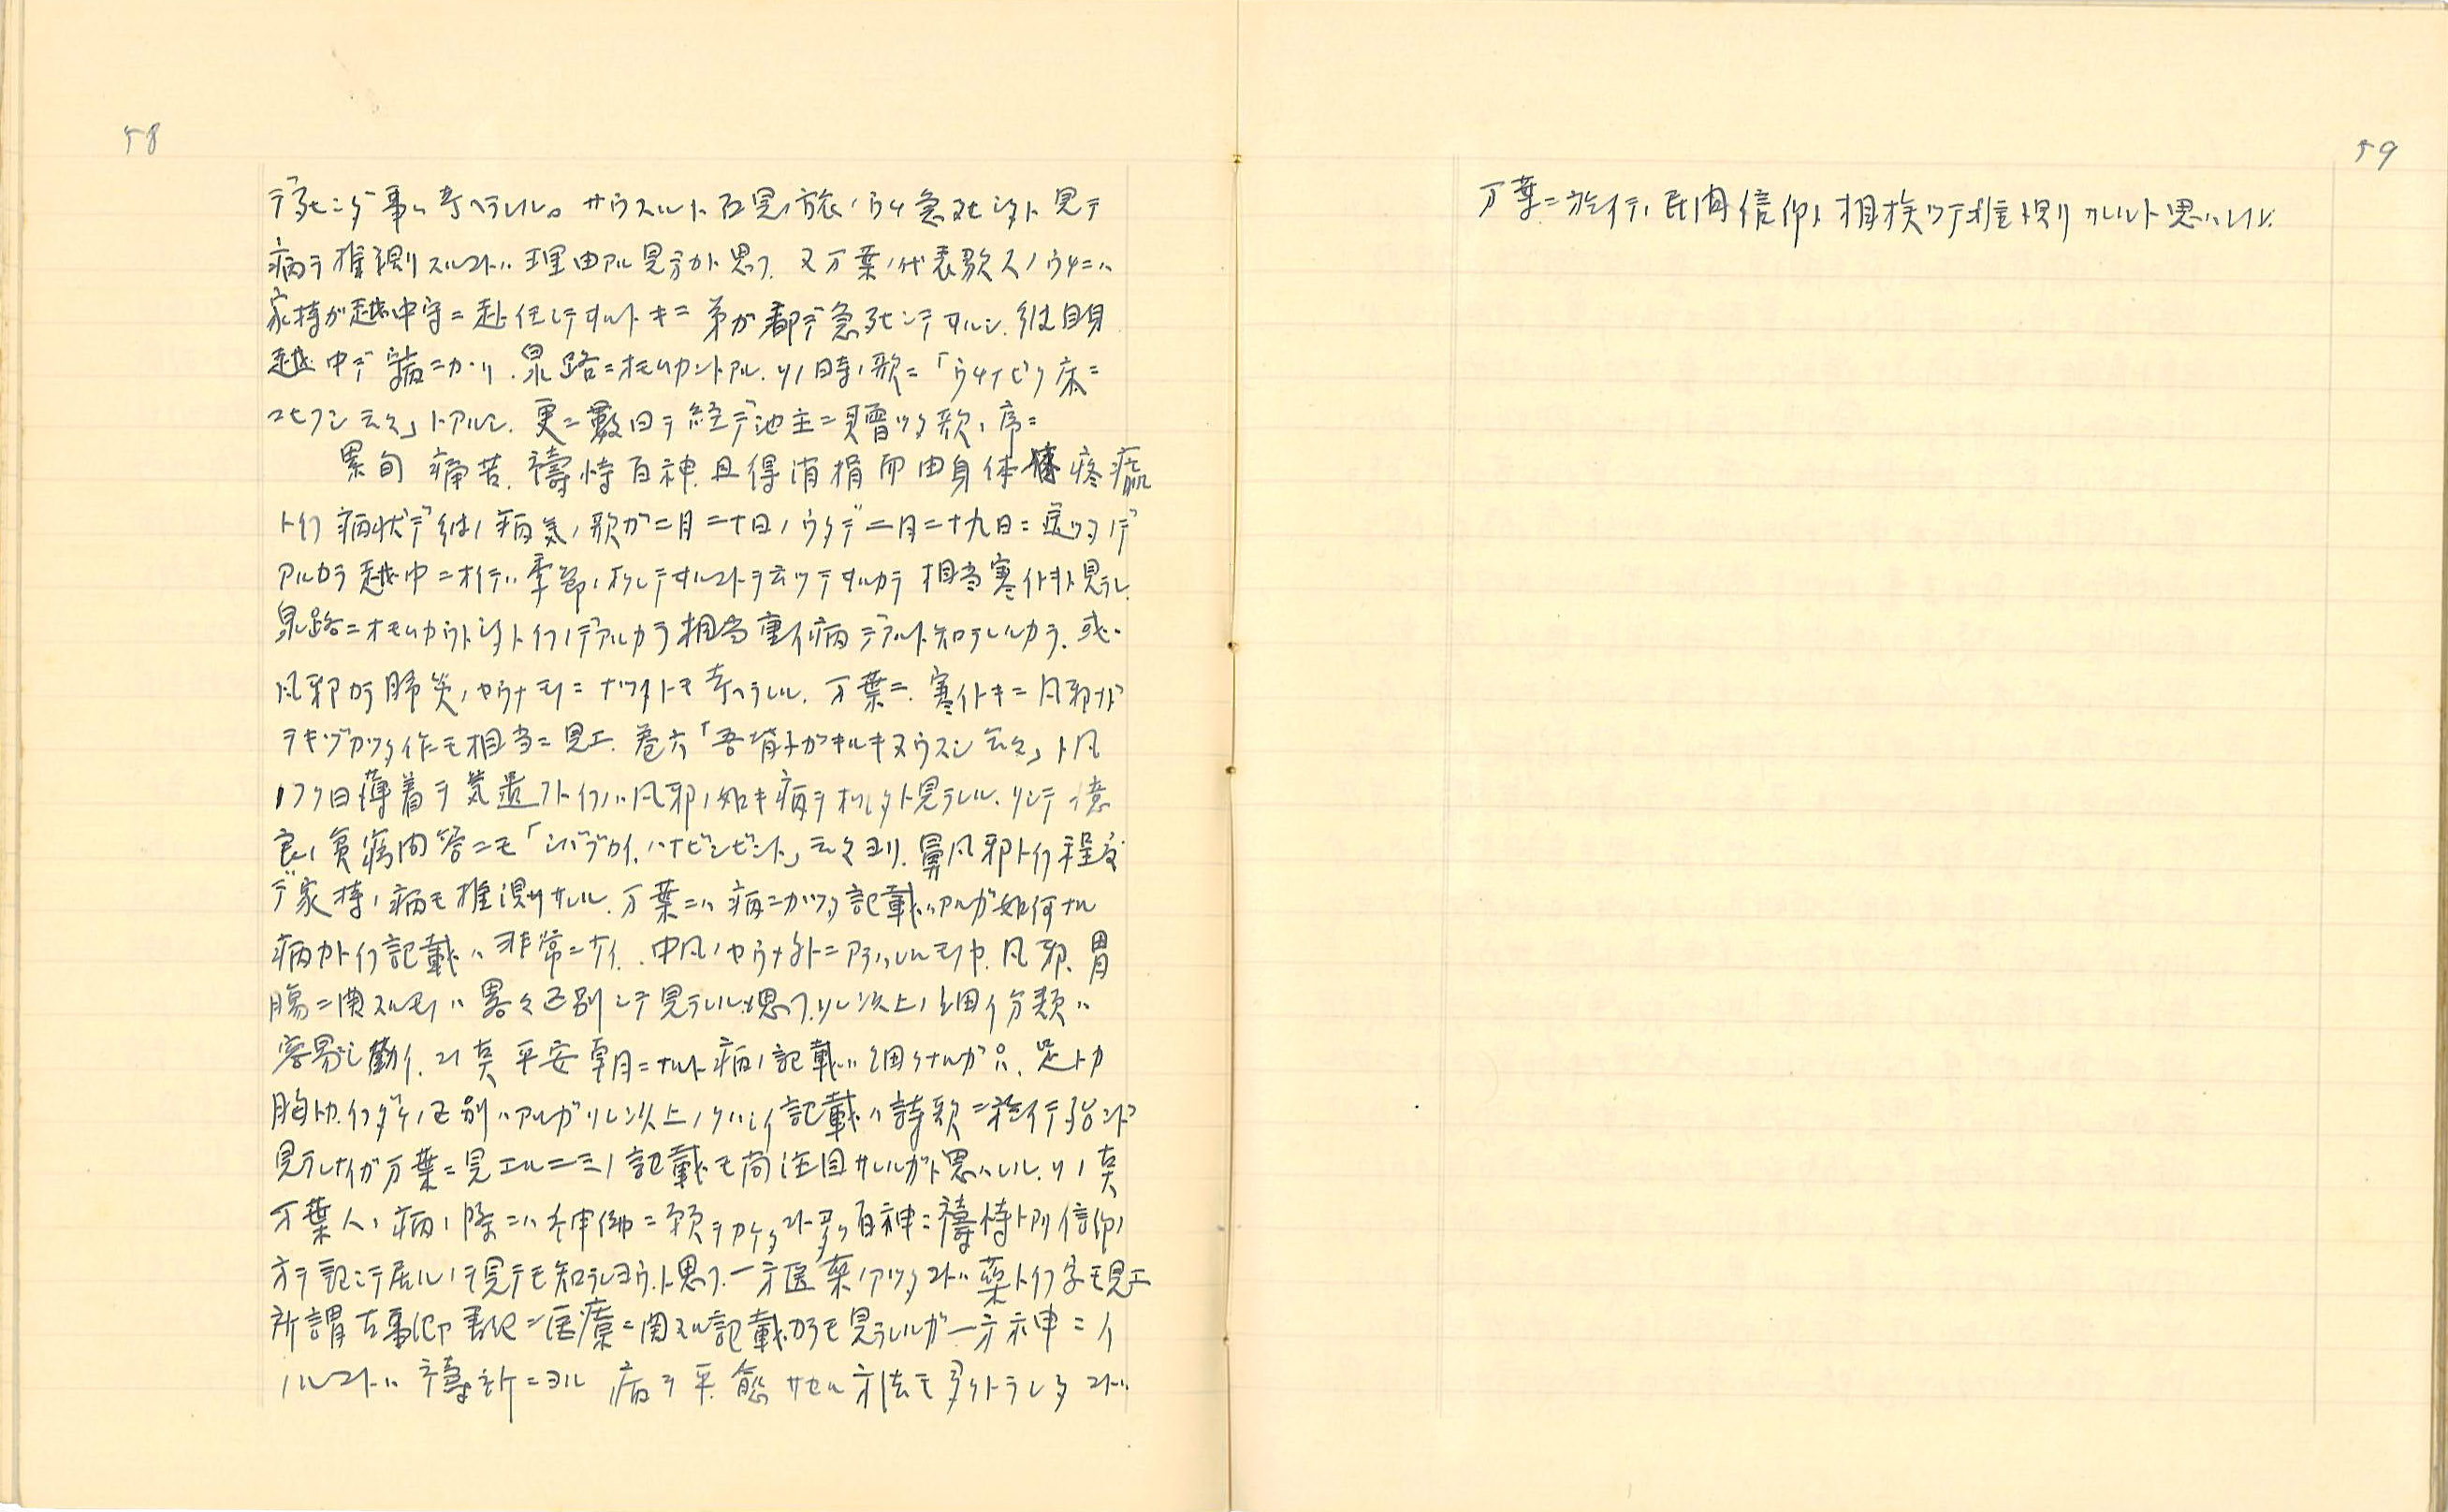 58
デ死ンダ事ハ考ヘラレル。サウスルト石見ノ旅ノウチ急死シタト見テ
病ヲ推測スルコトハ理由アル見方カト思フ。又万葉ノ代表歌人ノウチニハ
家持ガ越中守ニ赴任シテヰルトキニ弟ガ都デ急死シテヰルシ、彼自身
越中デ病ニカヽリ、泉路ニオモムカントアル。ソノ時ノ歌ニ「ウチナビク床ニ
コヒフシ云々」トアルシ、更ニ数日ヲ経テ池主ニ贈ツタ歌ノ序ニ
累旬痛苦、祷恃百神、且得消損而由身体疼羸
トイフ病状デ彼ノ病気ノ歌ガ二月二十日ノウタデ二月二十九日ニ送ツタノデ
アルカラ越中ニオイテハ季節ノオクレテヰルコトヲ云ツテヰルカラ相当寒イトキト見ラレ
泉路ニオモムカウトシタトイフノデアルカラ相当重イ病デアルト知ラレルカラ、或ハ
風邪カラ肺炎ノヤウナモノニナツタトモ考ヘラレル。万葉ニハ寒イトキニ風邪ナド
ヲキヅカツタ作モ相当ニ見エ、巻六「吾背子ガキルキヌウスシ云々」ト風
ノフク日薄着ヲ気遣フトイフハ風邪ノ如キ病ヲオソレタト見ラレル。ソシテ憶
良ノ貧窮問答ニモ「シハブカイ、ハナビシビシト」云々ヨリ、鼻風邪トイフ程度
デ家持ノ病モ推測サレル。万葉ニハ病ニカヽツタ記載ハアルガ如何ナル
病カトイフ記載ハ非常ニナイ。中風ノヤウナ外ニアラハレルモノヤ、風邪、胃
腸ニ関スルモノハ畧々区別シテ見ラレルト思フ。ソレ以上ノ細イ分類ハ
容易ニ難イ。コノ点平安朝ニナルト病ノ記載ハ細クナルガ只、足トカ
胸トカイフダケノ区別ハアルガソレ以上ノクハシイ記載ハ詩歌ニ於イテ殆ンド
見ラレナイガ万葉ニ見エル二三ノ記載モ尚注目サレルカト思ハレル。ソノ点
万葉人ハ病ノ際ニハ神仏ニ願ヲカケタコト多ク百神ニ祷恃トアリ信仰ノ
方ヲ記シテ居ルノヲ見テモ知ラレヨウト思フ。一方医薬ノアツタコトハ薬トイフ字モ見エ
所謂古事記、書紀ニ医療ニ関スル記載カラモ見ラレルガ一方神ニイ
ノルコトハ祷祈ニヨル病ヲ平愈サセル方法モ多クトラレタコトハ
59
万葉ニ於イテハ民間信仰ト相挨ツテ推測サレルト思ハレル。